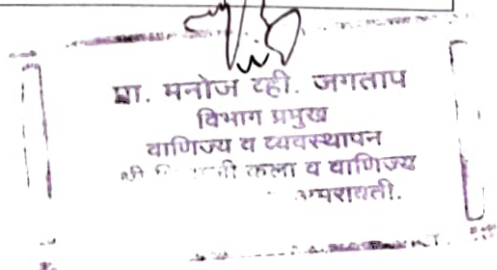 प्रा. मनोज व्ही. जगताप
विभाग प्रमुख
वाणिज्य व व्यवस्थापन
कला व वाणिज्य
अमरावती.